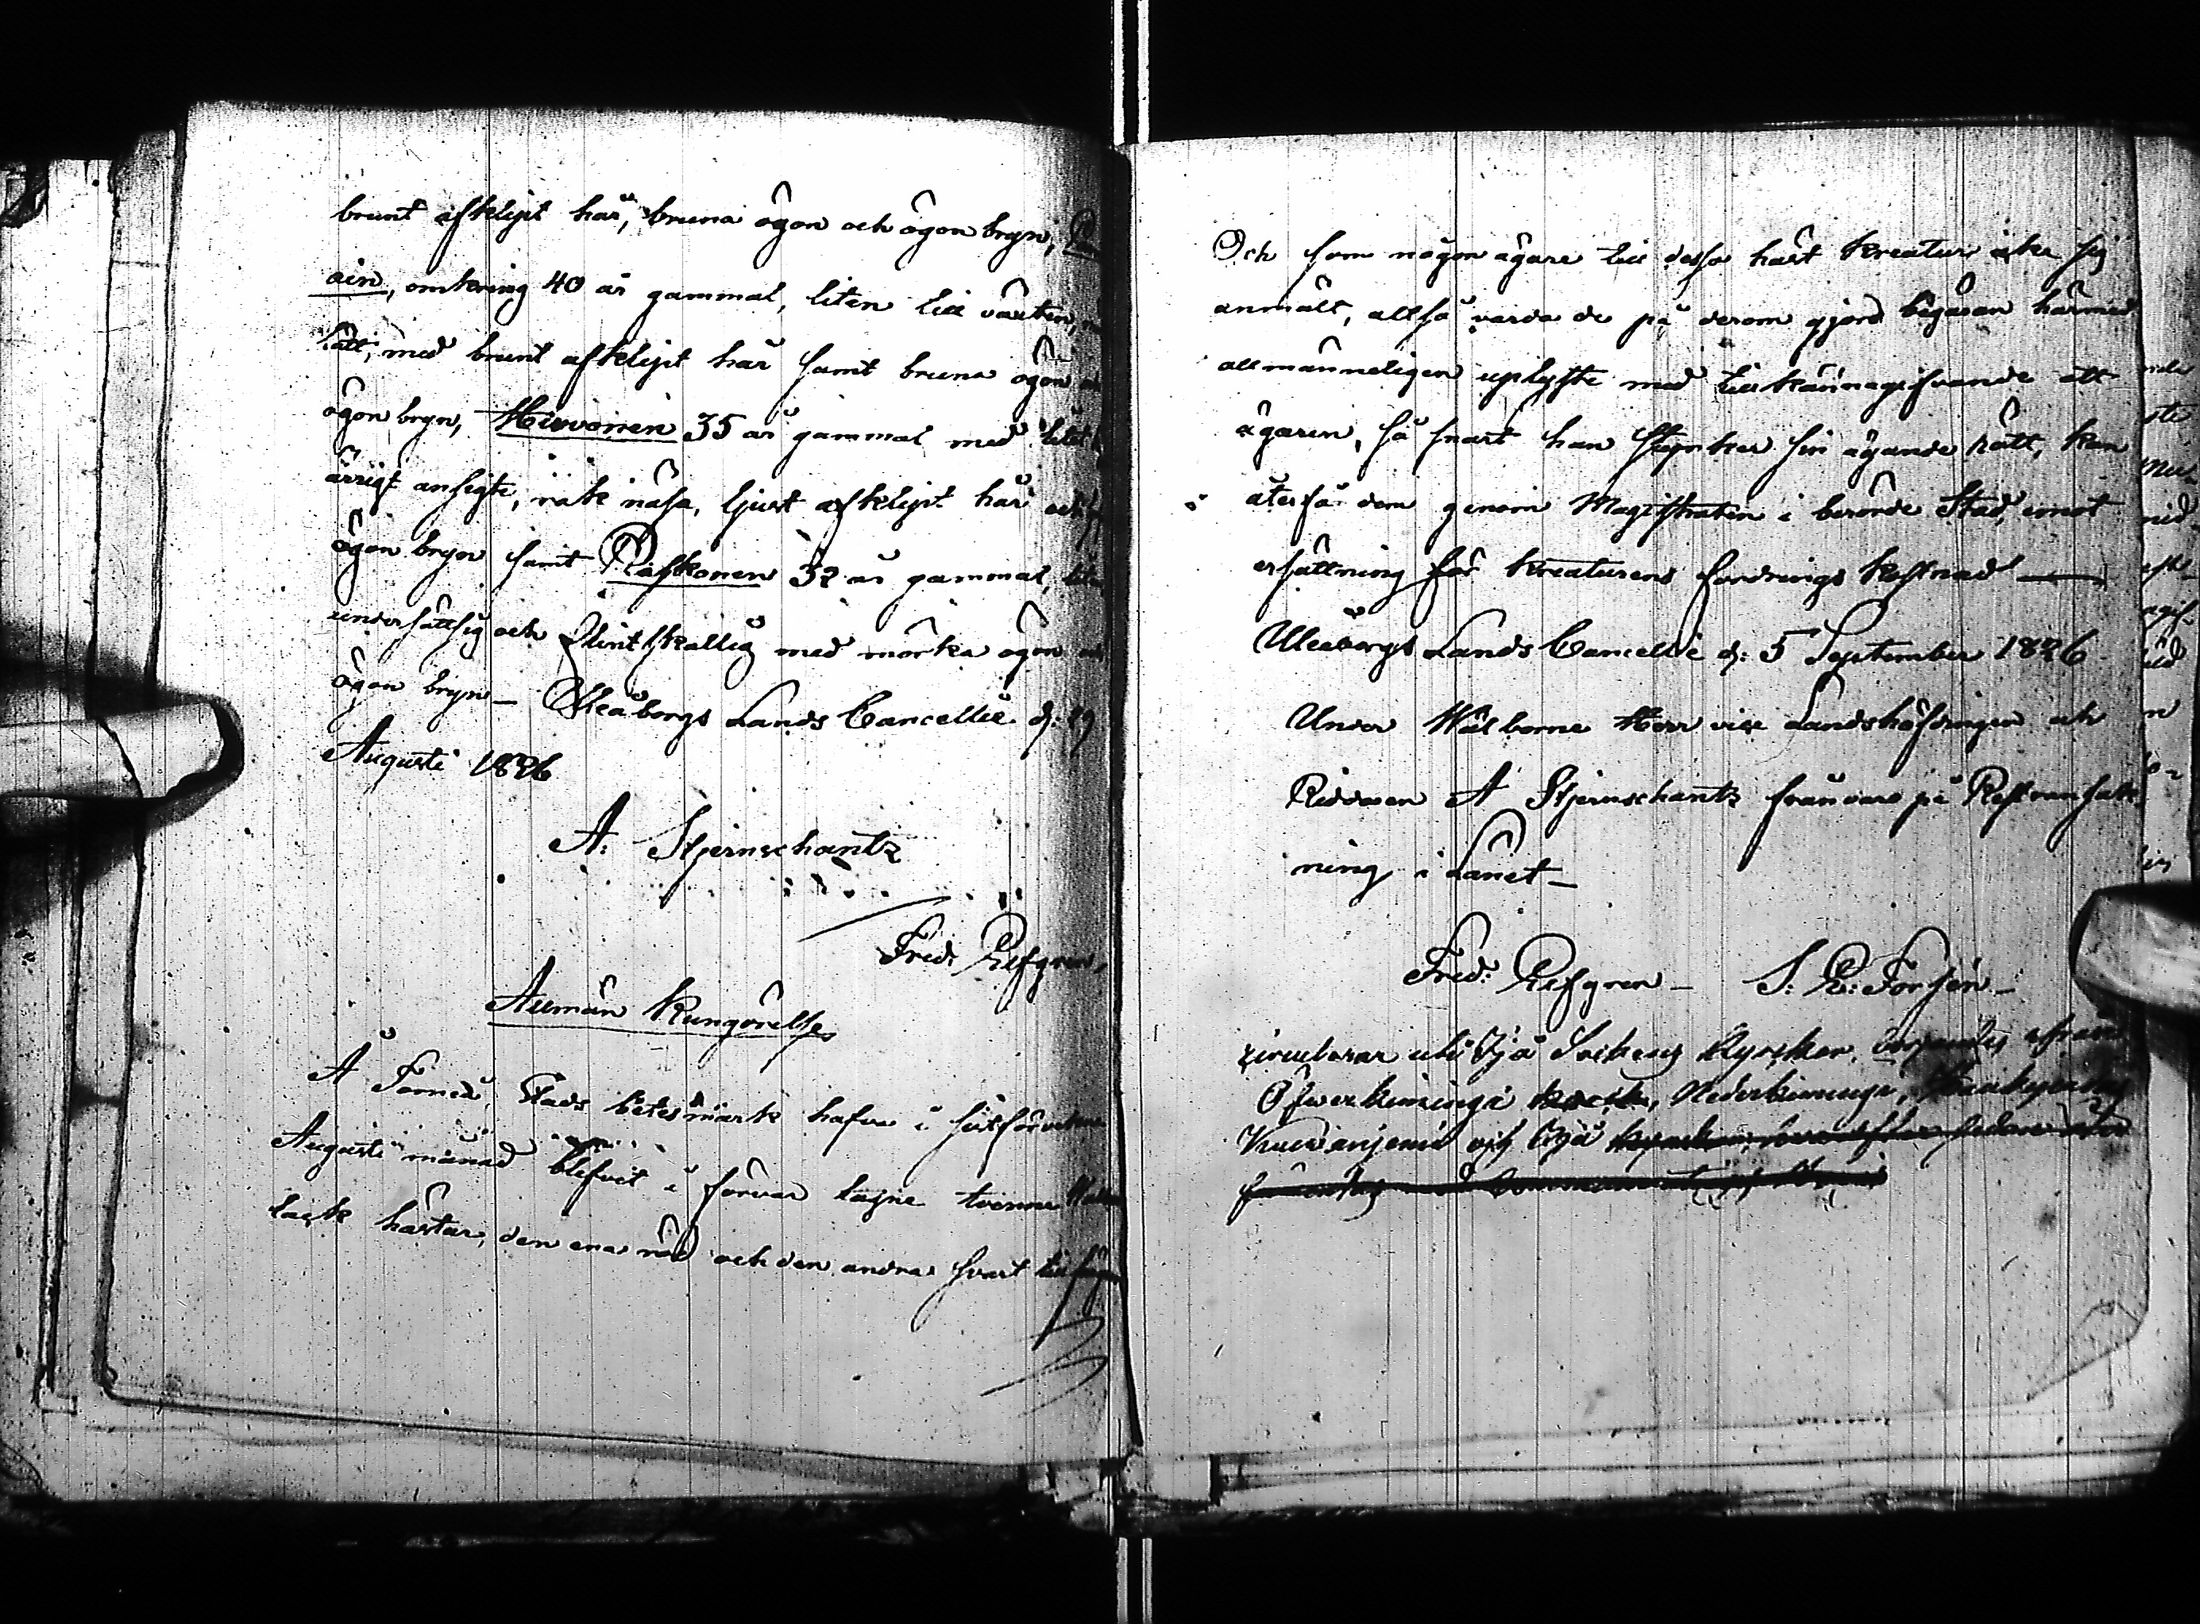 brunt afklipt hår, bruna ögon och ögonbryn,
ain, omkring 40 år gammal, liten till växten,
lätt, med brunt afklipt hår samt bruna ögon
ögonbryn, Hirvonen 35 år gammal med litet
ärrigt ansigte, rak näsa, ljust afklipt hår och
ögonbryn samt Räfkonen 32 år gammal, liten
undersättsig och flintskallig med mörka ögon
ögon bryn – Uleåborgs Lands Cancellie d: 29
Augusti 1826
A: Stjernschantz
Fred: Elfgren,
Allmän Kungörelse
Å Torneå Stads betesmark hafva i sistförvekne
Augusti månad blefvit i förvar tagne tvenne
lack hästar, den ena röd och den andra svart till färgen
Och som någon ägare till dessa häst Kreatur icke sig
anmält, alltså varda de på derom gjord begäran härmed
allmänneligen uplyste med tillkännagifvande att
ägaren, så snart han styrker sin ägande rätt, kan
återfå dem genom Magistraten i berörde Stad, emot
ersättning för Kreaturens fordrings kostnad —
Uleåborgs Lands Cancellie d: 5 September 1826
Under Wälborne Herr vice Landshöfdingen och
Riddaren A Stjernschantz frånvaro på Rest ransak
ning i Länet –
Fred: Elfgren – S: E: Forsén –
circulerar uti Ijå Sockens Kyrkor,
Öfverkiminge, Nederkiminge, Haukipudas
Kuivaniemi och Ijå